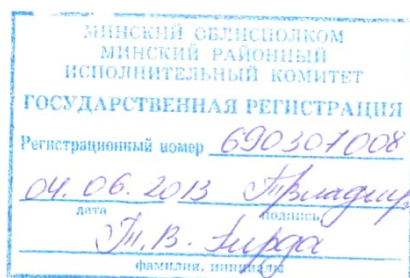 МИНСКИЙ ОБЛИСПОЛКОМ
МИНСКИЙ РАЙОННЫЙ
ИСПОЛНИТЕЛЬНЫЙ КОМИТЕТ
ГОСУДАРСТВЕННАЯ РЕГИСТРАЦИЯ
Регистрационный номер 690301008
04.06.2013
дата подпись
Т.В.
фамилия, инициалы